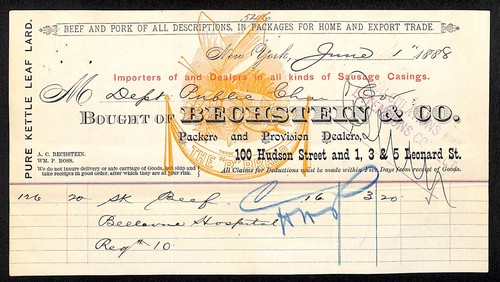 BEEF AND PORK OF ALL DESCRIPTIONS, IN PACKAGES FOR HOME AND EXPORT TRADE.
New York, June 1" 1888
Importers of and Dealers in all kinds of Sausage Casings.
M Dept Public
BOUGHT OF BECHSTEIN & CO.
Packers and Provision Dealers,
100 Hudson Street and 1, 3 & 5 Leonard St.
PURE KETTLE LEAF LARD.
A. C. BECHSTEIN.
WM. P. ROSS.
We do not insure delivery or safe carriage of Goods, but ship and
take receipts in good order, after which they are at your risk.
All Claims for Deductions must be made within Five Days from receipt of Goods.
126 20 Beef 16 3 20
Bellevue Hospital
Req # 10.